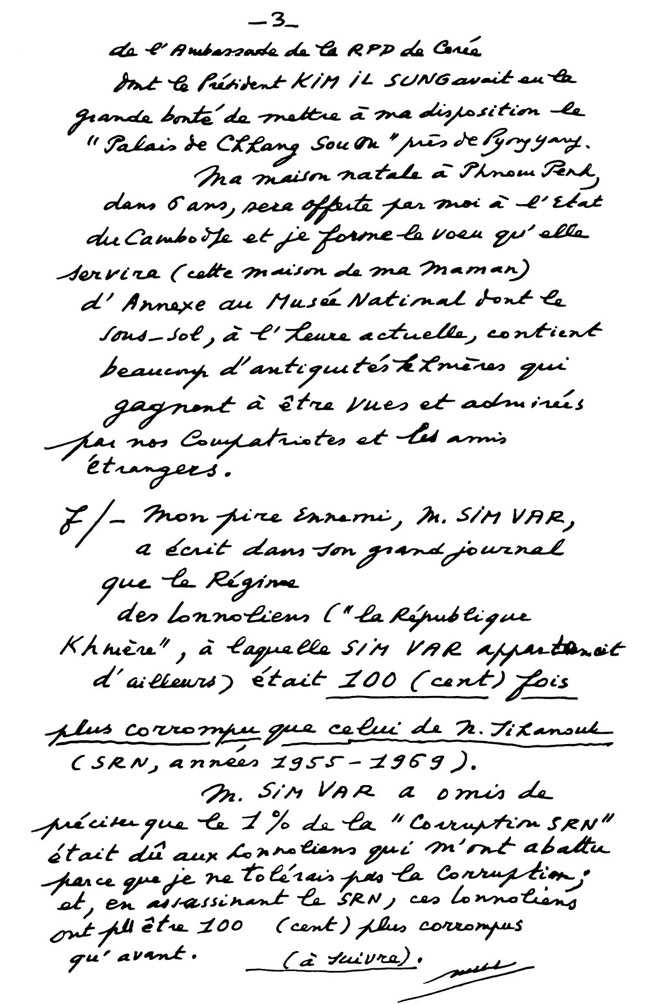 –3–
de l'Ambassade de la RPD de Corée
dont le Président KIM IL SUNG avait eu la
grande bonté de mettre à ma disposition le
"Palais de Chhang Sou On" près de Pyongyang.
Ma maison natale à Phnom Penh,
dans 6 ans, sera offerte par moi à l'Etat
du Cambodge et je forme le voeu qu'elle
servira (cette maison de ma Maman)
d'Annexe au Musée National dont le
sous-sol, à l'heure actuelle, contient
beaucoup d'antiquités khmères qui
gagnent à être vues et admirées
par nos Compatriotes et les amis
étrangers.
f/- Mon pire Ennemi, M. SIM VAR,
a écrit dans son grand journal
que le Régime
des lonnoliens ("la République
Khmère", à laquelle SIM VAR appartenait
d'ailleurs) était 100 (cent) fois
plus corrompu que celui de N. Sihanouk
(SRN, années 1955-1969).
M. SIM VAR a omis de
préciser que le 1% de la "Corruption SRN"
était dû aux Lonnoliens qui m'ont abattu
parce que je ne tolérais pas la Corruption;
et, en assassinant le SRN, ces lonnoliens
ont pu être 100 (cent) plus corrompus
qu'avant. (à suivre).